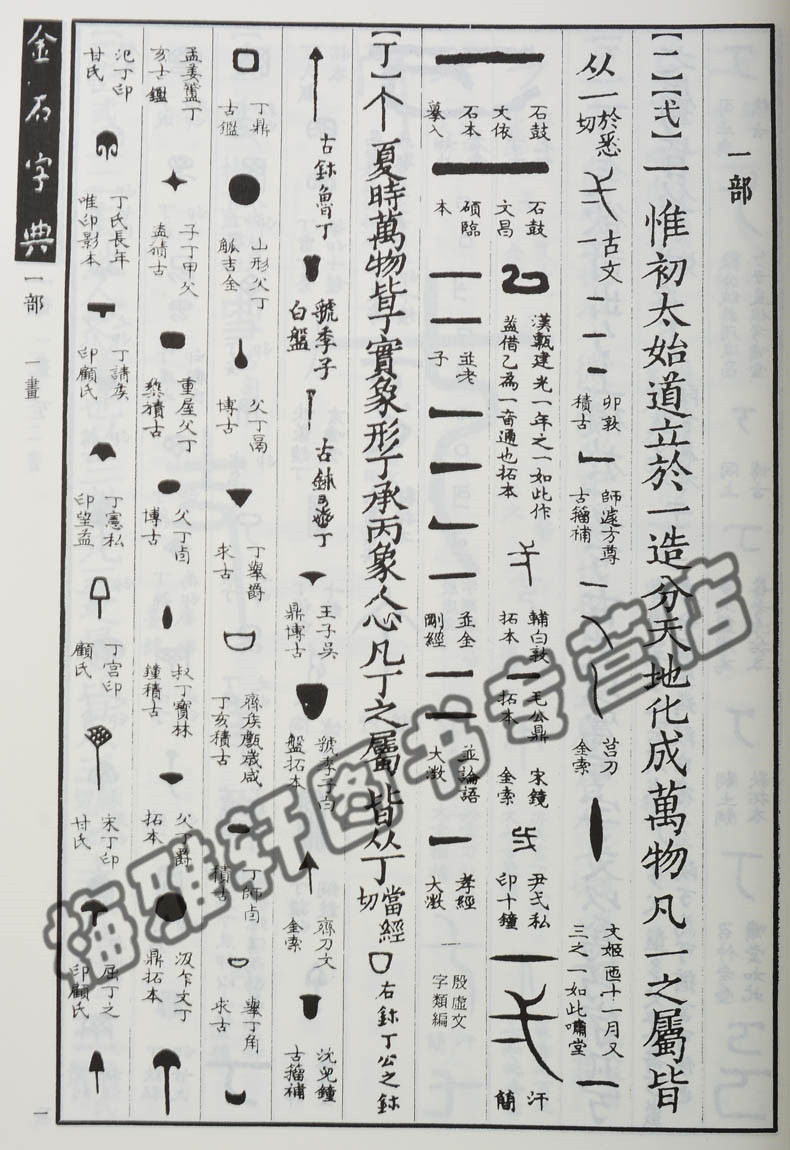 一部
【一】【弌】一惟初太始道立於一造分天地化成萬物凡一之屬皆
从一於悉切 古文 卯敦積古 師遽方尊古籀補 莒刀金索 文姬匜十一月又三之一如此嘯堂
石鼓文昌 漢甎建光一年之一如此作葢借乙為一音通也拓本 輔白敦拓本 毛公鼎拓本 宋鏡金索 尹弌私印十鐘 汗簡
石鼓大依石本摹入 碩臨本 並老子 並金剛經 並論語大澂 孝經大澂 殷虛文字類編
【丁】个夏時萬物皆丁實象形丁承丙象人心凡丁之屬皆从丁當經切 右鉥丁公之鉥
古鉥魯丁 虢季子白盤 古鉥 丁 王子吳鼎博古 虢季子白盤拓本 齊刀文金索 沈兒鐘古籀補
丁鼎古鑑 山形父丁觚吉金 父丁鬲博古 丁舉爵求古 齊侯甗歲咸丁亥積古 丁師卣積古 舉丁角求古
孟姜簠丁亥古鑑 子丁甲父盉積古 重屋父丁彝積古 父丁卣博古 叔丁寶林鐘積古 父丁爵拓本 汲乍文丁鼎拓本
氾丁印甘氏 丁氏長年唯印影本 丁請矦印顧氏 丁憲私印望益 丁宮印顧氏 宋丁印甘氏 屈丁之印顧氏
金石字典
一部 一畫
一
梅雅軒图书专营店